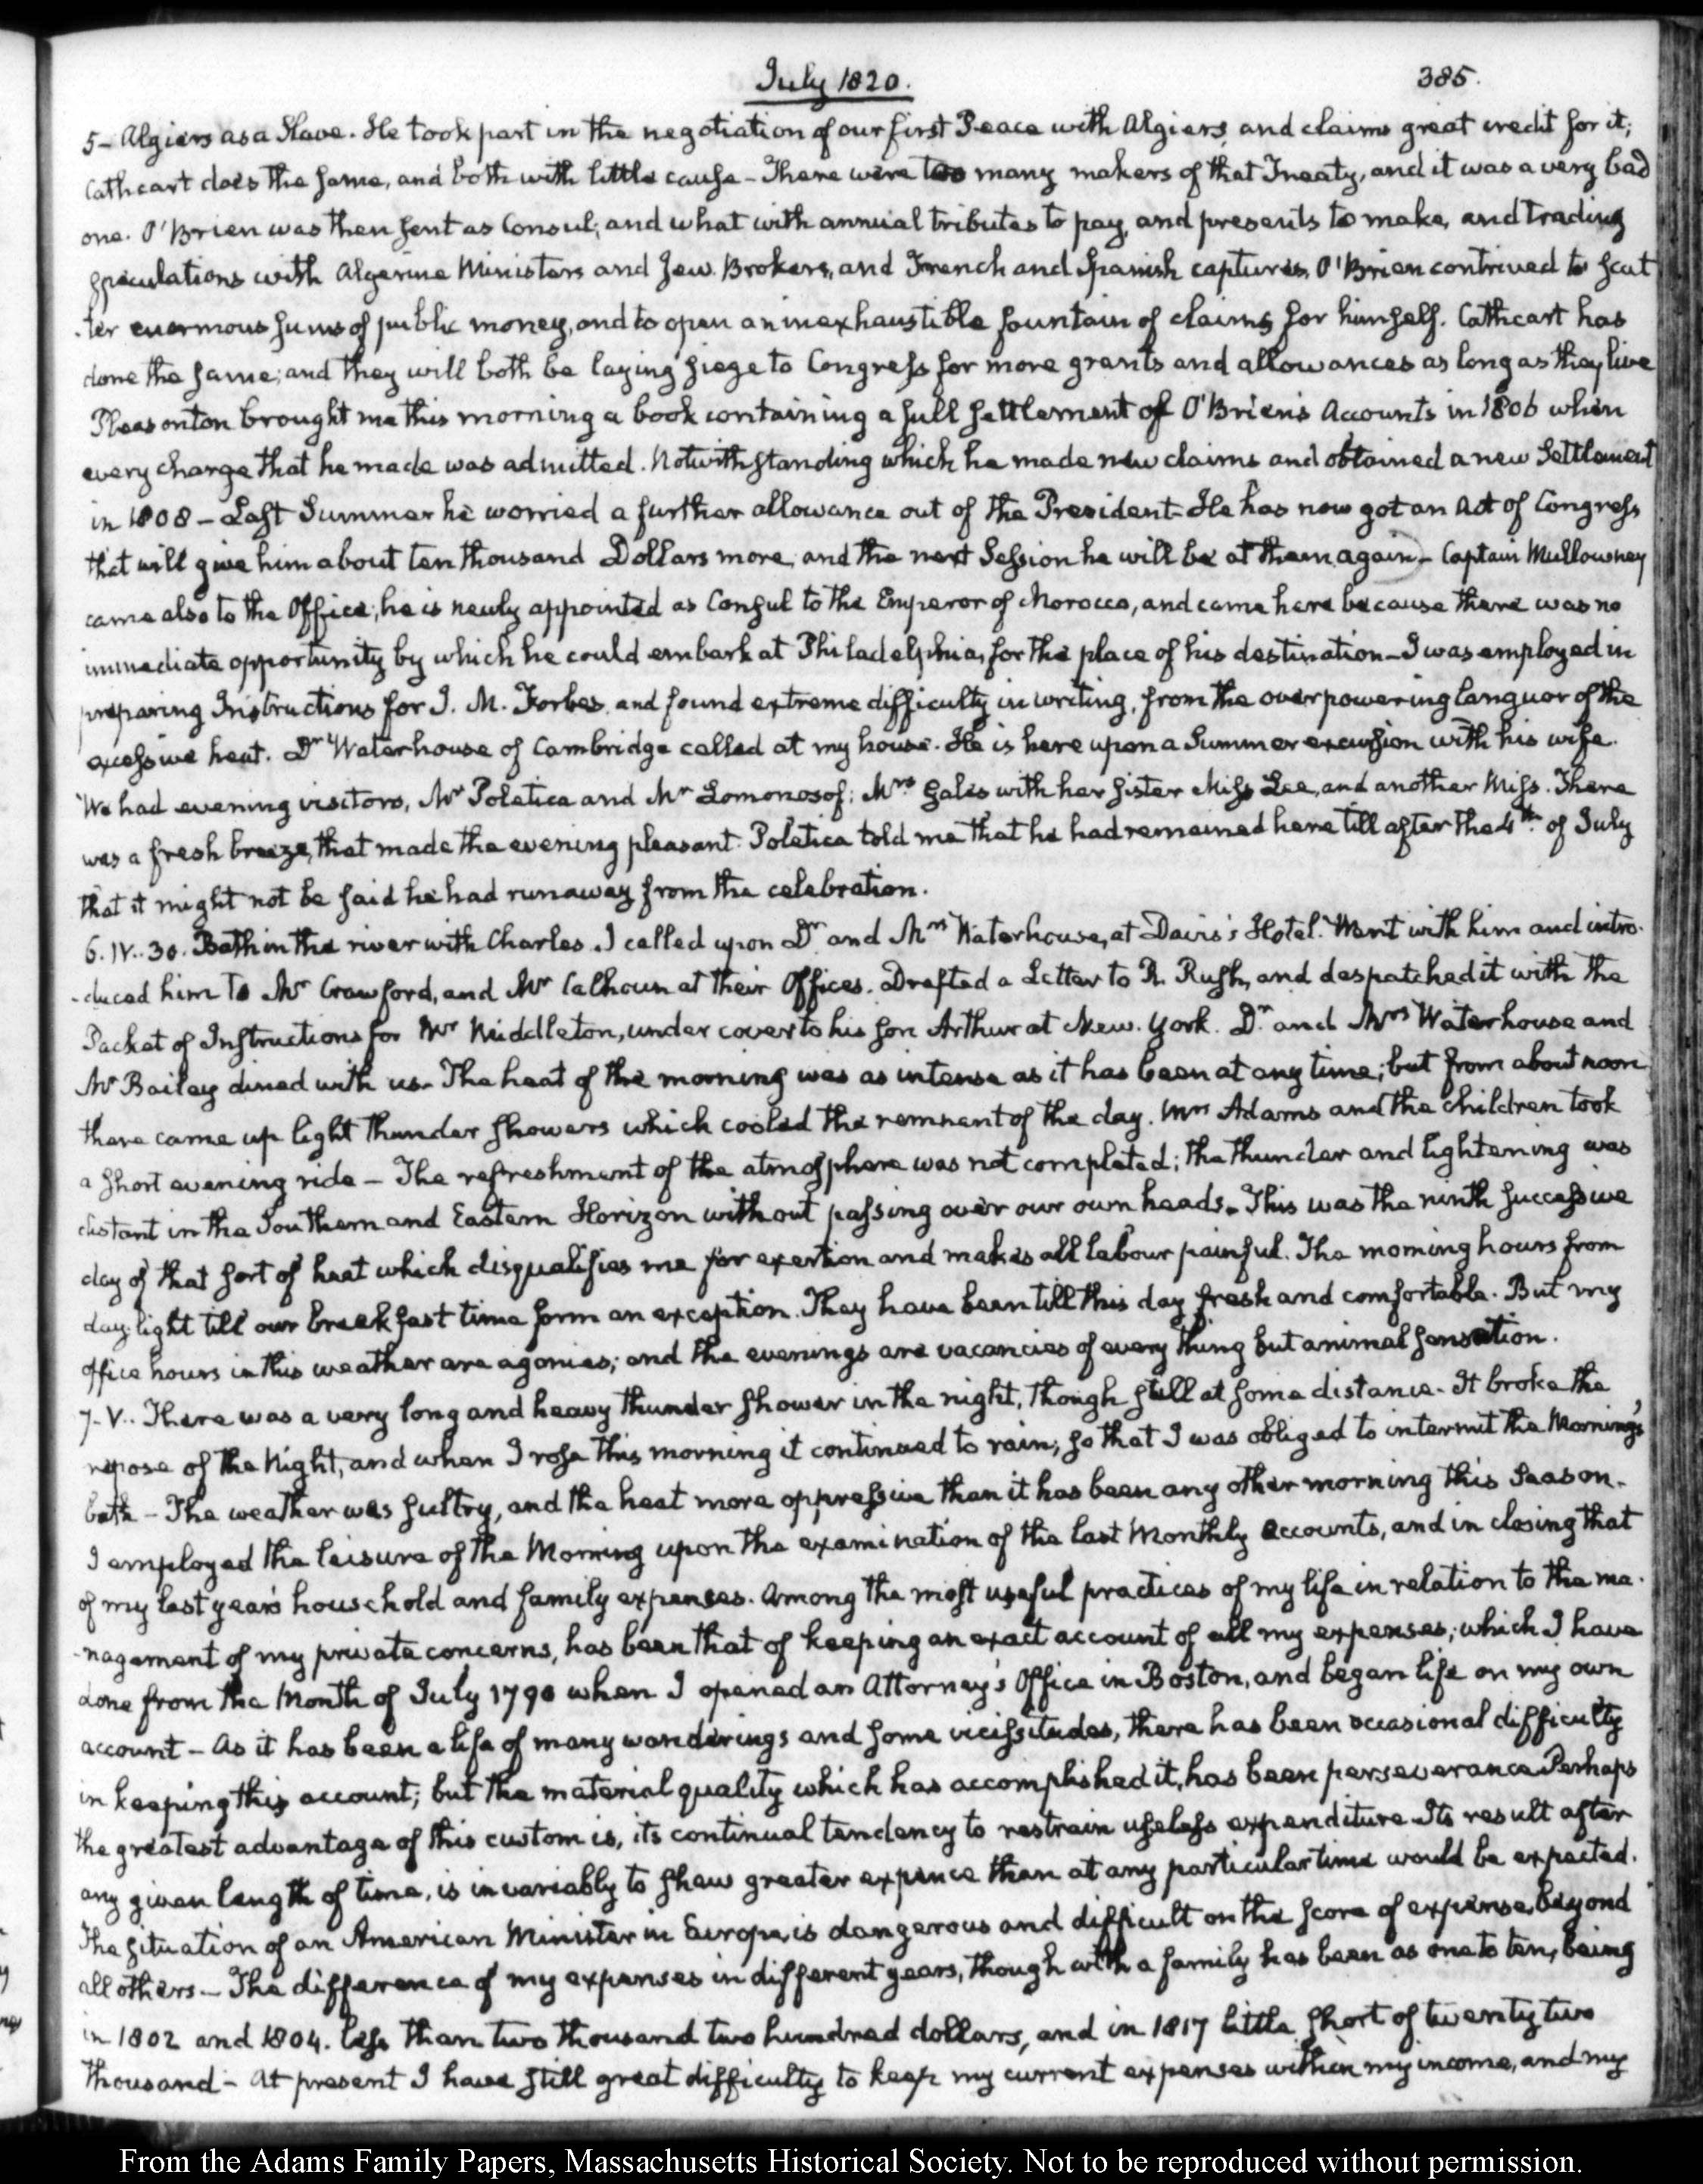 July 1820.
385.
5- Algiers as a Slave. He took part in the negotiation of our first Peace with Algiers, and claims great credit for it;
Cathcart does the same, and both with little cause - There were too many makers of that Treaty, and it was a very bad
one. O'Brien was then sent as Consul; and what with annual tributes to pay, and presents to make, and trading
speculations with Algerine Ministers and Jew Brokers, and French and Spanish captures, O'Brien contrived to scat
-ter enormous sums of public money, and to open an inexhaustible fountain of claims for himself. Cathcart has
done the same; and they will both be laying siege to Congress for more grants and allowances as long as they live
Pleasonton brought me this morning a book containing a full settlement of O'Brien's Accounts in 1806 when
every charge that he made was admitted. Notwithstanding which he made new claims and obtained a new Settlement
in 1808 - Last Summer he worried a further allowance out of the President - He has now got an Act of Congress,
that will give him about ten thousand Dollars more, and the next Session he will be at them again - Captain Mullowney
came also to the Office; he is newly appointed as Consul to the Emperor of Morocco, and came here because there was no
immediate opportunity by which he could embark at Philadelphia, for the place of his destination - I was employed in
preparing Instructions for J. M. Forbes, and found extreme difficulty in writing, from the overpowering languor of the
excessive heat. Dr. Waterhouse of Cambridge called at my house. He is here upon a Summer excursion with his wife.
We had evening visitors, Mr Poletica and Mr Lomonosof; Mrs Gales with her sister Miss Lee, and another Miss. There
was a fresh breeze, that made the evening pleasant. Poletica told me that he had remained here till after the 4th. of July
that it might not be said he had runaway from the celebration.
6. IV.. 30. Bath in the river with Charles. I called upon Dr. and Mrs Waterhouse, at Davis's Hotel. Went with him and intro-
-duced him to Mr Crawford, and Mr Calhoun at their Offices. Drafted a Letter to R. Rush, and despatched it with the
Packet of Instructions for Mr Middleton, under cover to his son Arthur at New-York. Dr. and Mrs Waterhouse and
Mr Bailey dined with us - The heat of the morning was as intense as it has been at any time; but from about noon
there came up light thunder showers which cooled the remnant of the day. Mrs Adams and the children took
a short evening ride - The refreshment of the atmosphere was not completed; the thunder and lightening was
distant in the Southern and Eastern Horizon without passing over our own heads. This was the ninth successive
day of that sort of heat which disqualifies me for exertion and makes all labour painful. The morning hours from
day-light till our breakfast time form an exception. They have been till this day fresh and comfortable. But my
office hours in this weather are agonies; and the evenings are vacancies of every thing but animal sensation.
7- V.. There was a very long and heavy thunder shower in the night, though still at some distance. It broke the
repose of the Night, and when I rose this morning it continued to rain; so that I was obliged to intermit the Morning's
bath - The weather was sultry, and the heat more oppressive than it has been any other morning this Season.
I employed the leisure of the Morning upon the examination of the last Monthly accounts, and in closing that
of my last year's household and family expenses. Among the most useful practices of my life in relation to the ma-
-nagement of my private concerns, has been that of keeping an exact account of all my expenses; which I have
done from the Month of July 1790 when I opened an Attorney's Office in Boston, and began life on my own
account - As it has been a life of many wanderings and some vicissitudes, there has been occasional difficulty
in keeping this account; but the material quality which has accomplished it, has been perseverance. Perhaps
the greatest advantage of this custom is, its continual tendency to restrain useless expenditure. Its result after
any given length of time, is invariably to shew greater expence than at any particular time would be expected.
The situation of an American Minister in Europe, is dangerous and difficult on the score of expense, beyond
all others - The difference of my expenses in different years, though with a family has been as one to ten, being
in 1802 and 1804. less than two thousand two hundred dollars, and in 1817 little short of twenty two
thousand - At present I have still great difficulty to keep my current expenses within my income, and my
From the Adams Family Papers, Massachusetts Historical Society. Not to be reproduced without permission.